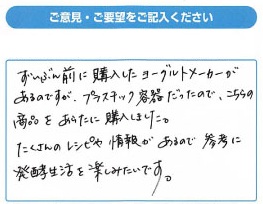 ご意見・ご要望をご記入ください
ずいぶん前に購入したヨーグルトメーカーが
あるのですが、プラスチック容器だったので、こちらの
商品をあらたに購入しました。
たくさんのレシピや情報があるので参考に
発酵生活を楽しみたいです。